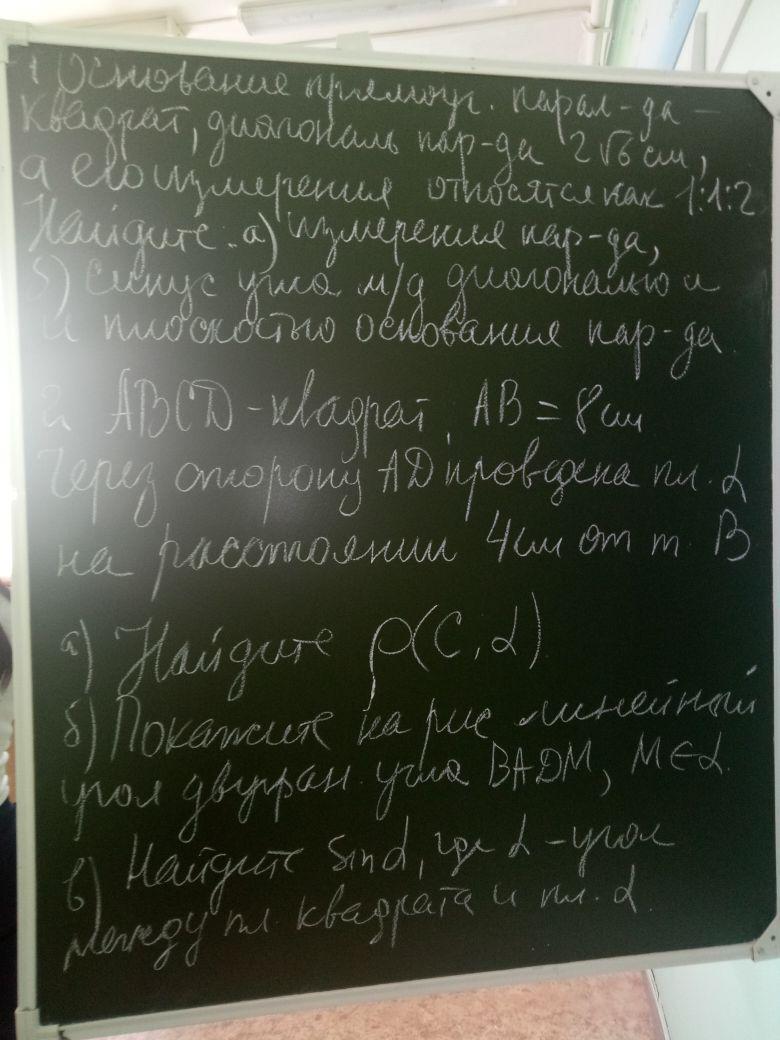 1 Основание прямоуг. парал-да —
квадрат, диагональ пар-да 2√6 см,
а его измерения относятся как 1:1:2
Найдите: а) измерения пар-да,
б) синус угла м/д диагональю и
и плоскостью основания пар-да
2. ABCD - квадрат, AB = 8 см
Через сторону AD проведена пл. α
на расстоянии 4 см от т. B
а) Найдите ρ(C, α)
б) Покажите на рис линейный
угол двугран. угла BADM, M∈α.
в) Найдите sinα, где α - угол
между пл. квадрата и пл. α.